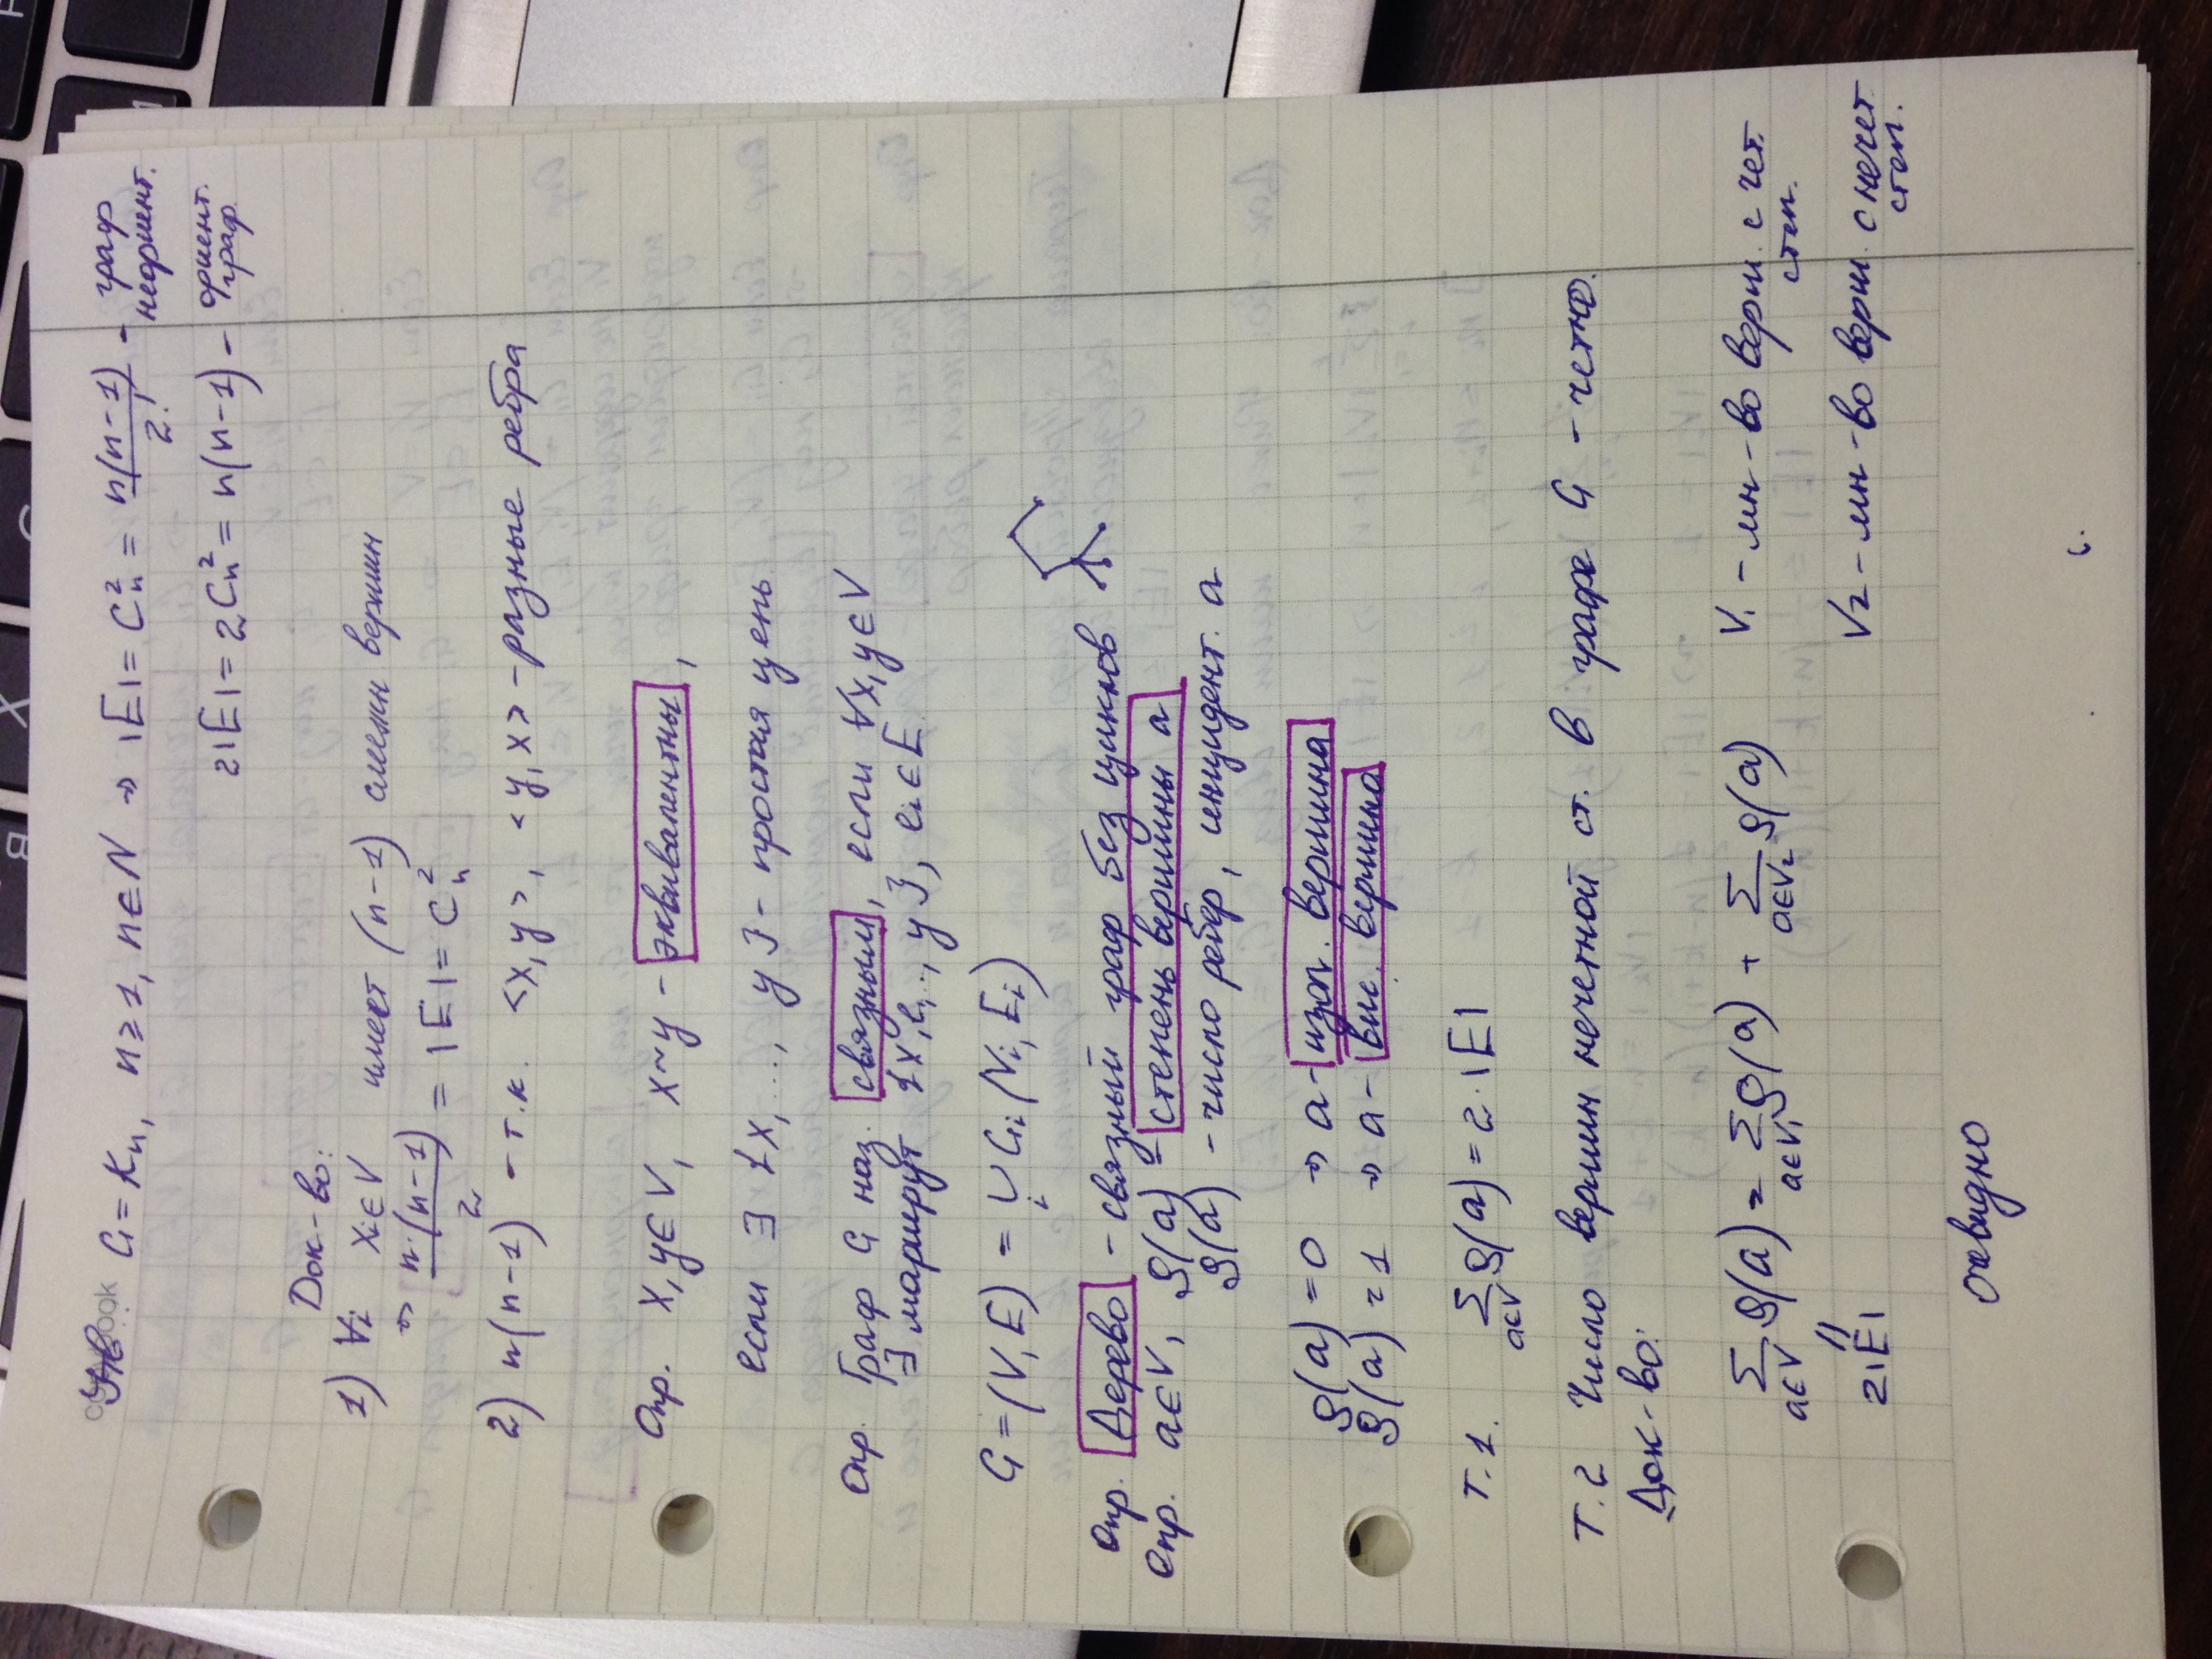 Утв. G = Kn, n ≥ 1, n ∈ N ⇒ |E| = C²n = n(n-1)/2! - граф неориент.
2|E| = 2C²n = n(n-1) - ориент. граф
Док-во:
1) ∀i xi ∈ V имеет (n-1) смежн вершин
⇒ n·(n-1)/2 = |E| = C²n
2) n(n-1) - т.к. <x,y>, <y,x> - разные ребра
Опр. x,y ∈ V, x~y - эквивалентны,
если ∃ {x, ..., y} - простая цепь
Опр. Граф G наз. связным, если ∀x,y ∈ V
∃ маршрут {x, e1, .., y}, ei ∈ E
G = (V, E) = ∪i Gi (Vi, Ei)
Опр. Дерево - связный граф без циклов
Опр. a ∈ V, ρ(a) - степень вершины a
ρ(a) - число ребер, инцидент. a
ρ(a) = 0 ⇒ a - изол. вершина
ρ(a) = 1 ⇒ a - вис. вершина
Т.1. ∑a∈V ρ(a) = 2·|E|
Т.2 Число вершин нечетной ст. в графе G - четно.
Док-во:
∑a∈V ρ(a) = ∑a∈V1 ρ(a) + ∑a∈V2 ρ(a) V1 - мн-во верш. с чет. степ.
||
2|E| V2 - мн-во верш. с нечет степ.
очевидно